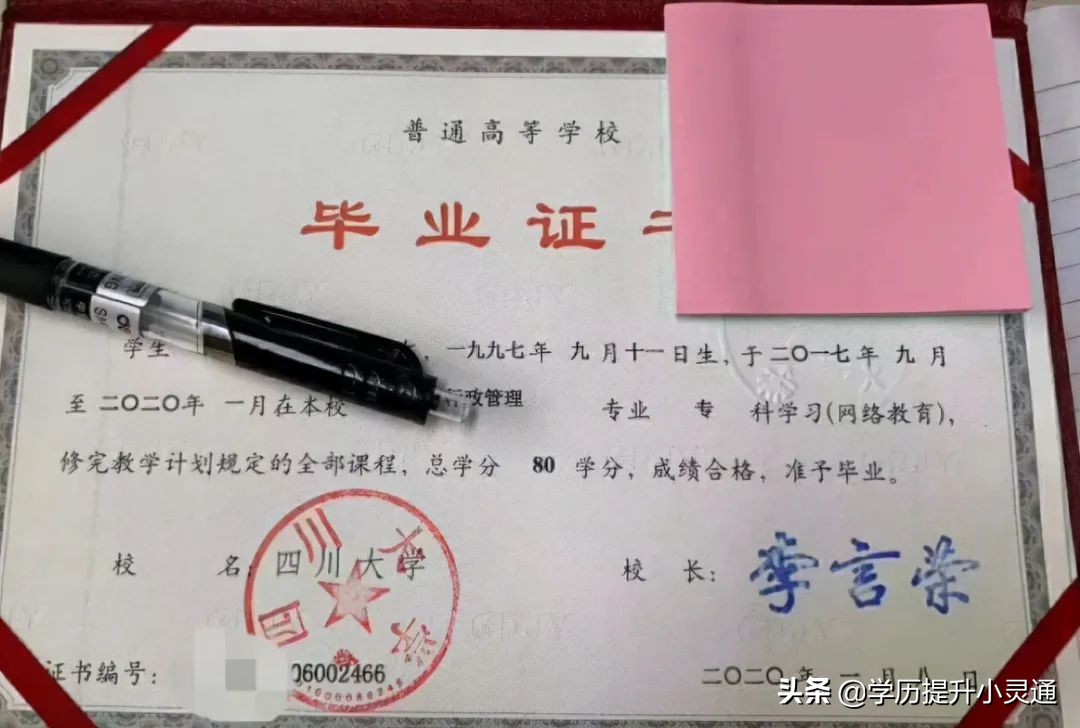 普通高等学校
毕业证
学生 ，一九九七年 九月十一日生，于二〇一七年 九 月
至 二〇二〇年 一月在本校 行政管理 专业 专 科学习(网络教育)，
修完教学计划规定的全部课程，总学分 80 学分，成绩合格，准予毕业。
校 名：四川大学 校 长：李言荣
四川大学
证书编号： 06002466 二〇二〇年 一 月 八 日
头条 @学历提升小灵通